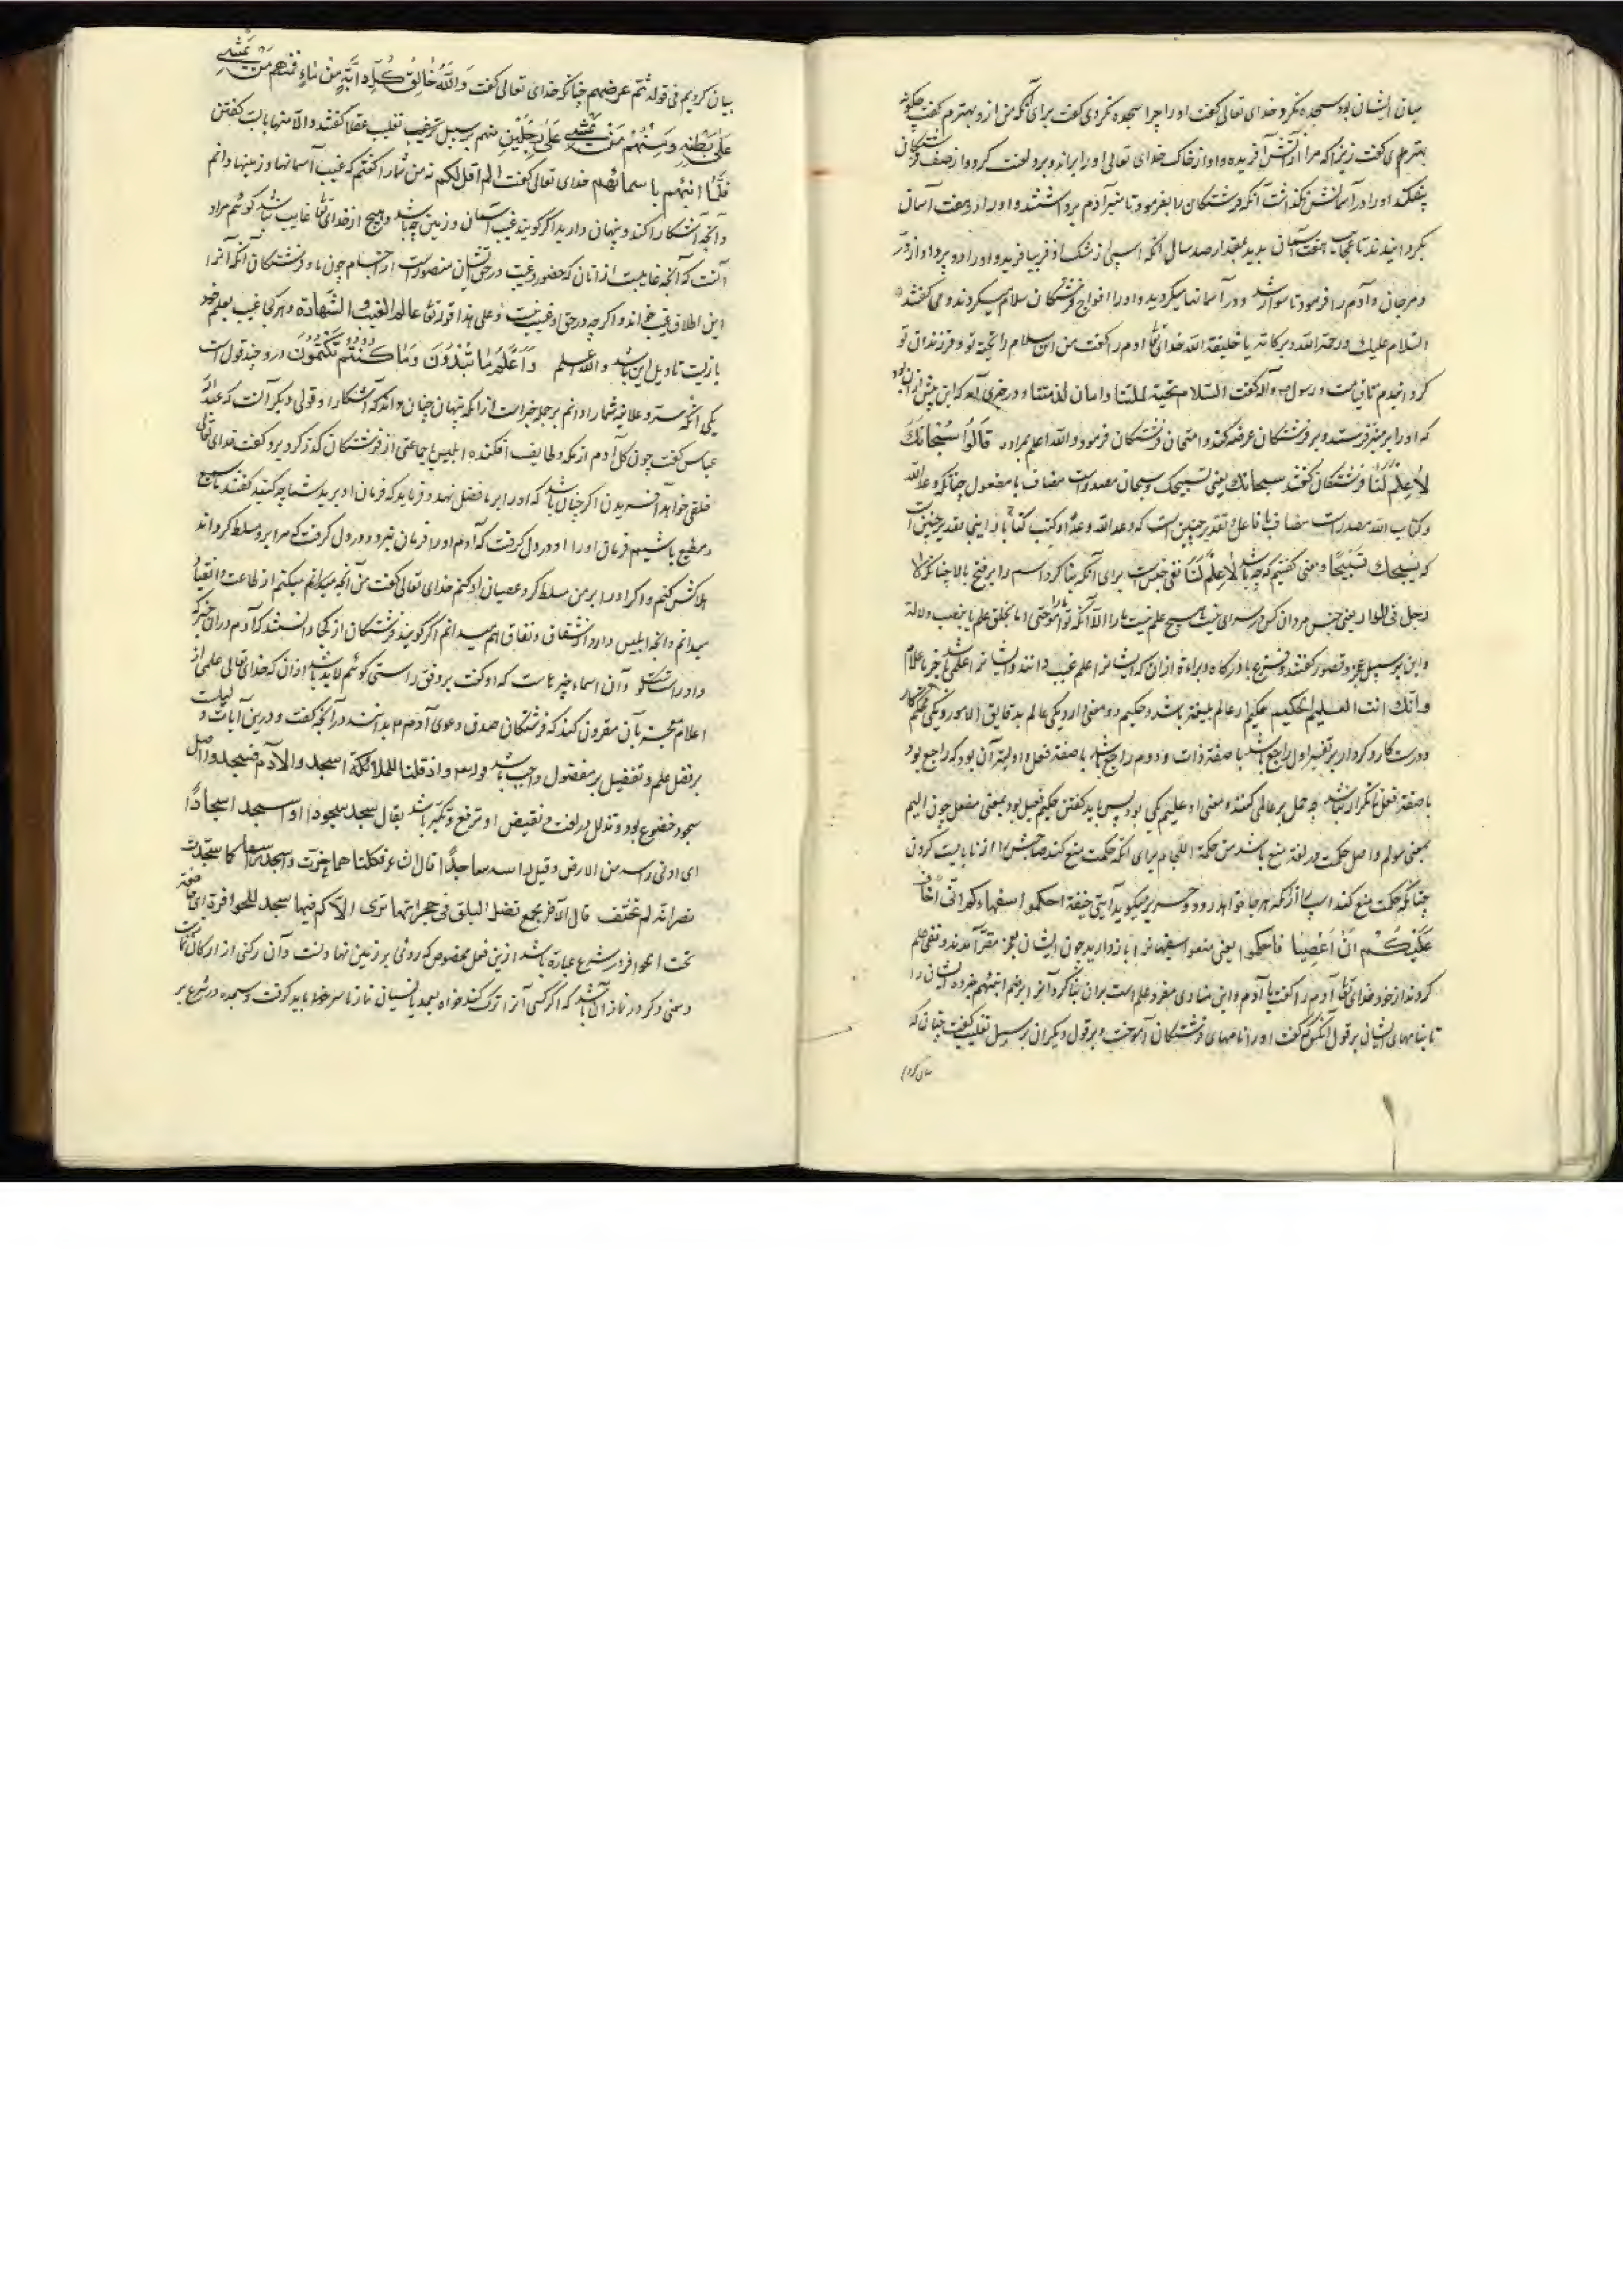 میان ایشان بود سجده نکرد خدای تعالی گفت او را چرا سجده نکردی گفت برای آنکه من ازو بهترم گفت چگونه
بهتری گفت زیرا که مرا از آتش آفریده و او از خاک خدای تعالی او را براند و برو لعنت کرد و از صف فرشتگان
بیفکند او را در آسمانش نگذاشت آنکه فرشتگان را بفرمود تا منبر آدم برداشتند و او را در هفت آسمان
بگردانیدند تا عجایب هفت آسمان بدید بمقدار صد سال آنکه اسپی از مشک اذفر بیافرید و او را دو پر داد از در
و مرجان و آدم را فرمود تا سوار شد و در آسمانها میگردید و او را افواج فرشتگان سلام میکردند و می گفتند
السلام علیک و رحمة الله و برکاته یا خلیفة الله خدای تعالی آدم را گفت من این سلام را تحیة تو و فرزندان تو
کردم و رسول ص و آله گفت السلام تحیة لملتنا و امان لذمتنا و در خبری آمد که این پیش از آن بود
که او را بر منبر فرستد و بر فرشتگان عرضه کند و امتحان فرشتگان فرمود والله اعلم بمراده قَالُوا سُبْحَانَكَ
لَا عِلْمَ لَنَا فرشتگان گفتند سبحانك یعنی تسبیحک و سبحان مصدر است مضاف با مفعول چنانکه وعد الله
و کتاب الله مصدر است مضاف با فاعل و تقدیر چنین است که وعد الله وعدا و کتب کتابا و اینجا تقدیر چنین است
که نسبحك تسبیحًا و معنی گفتیم که چه باشد لَا عِلْمَ لَنَا نفی جنس است برای آنکه بنا کرد اسم را بر فتح با لا چنانکه لا
رجل فی الدار یعنی جنس مردان کس در سرای نیست هیچ علم نیست ما را الا آنکه تو آموختی ما را اما بخلق علم یا بنصب دلالة
و این بر سبیل عجز و قصور گفتند و تضرع با درگاه و براءة از آن که ایشانرا علم غیب دانند و ایشانرا علمی باشد جز باعلام
و انك انت العلیم الحکیم علیم عالم بلیغتر باشد و حکیم دو معنی دارد یکی عالم بدقایق الامور و یکی محکم کار
و درست کار و کردار بر تفسیر اول راجع باشد با صفة ذات و دوم راجع باشد با صفة فعل و اولیتر آن بود که راجع بود
با صفة فعل تا تکرار نباشد چه حمل بر عالمی کنند و معنی او و علیم یکی بود پس باید گفتن حکیم فعیل بود بمعنی مفعل چون الیم
بمعنی مولم و اصل حکمت در لغة منع باشد من حکمة اللجام برای آنکه حکمت منع کند صاحبش را از نابایست کردن
چنانکه حکمت منع کند اسپ را از آنکه هر جا خواهد رود و جریر میگوید أبنی حنیفة احکموا سفهاءکم انی اخاف
عَلَيْكُمُ أَنْ أَغْضَبَا فاحکموا یعنی منعوا سفیهانرا باز دارید چون ایشان بعجز مقر آمدند و نفی علم
کردند از خود خدای تعالی آدم را گفت یا آدم و این منادی مفرد علم است بران بنا کرد آنرا بر ضم انبئهم خبر ده ایشان را
تا بنامهای ایشان بر قول آنکس که گفت او را نامهای فرشتگان آموخت و بر قول دیگران بر سبیل تغلیب گفت چنانکه
بیان کردیم
بیان کردیم فی قوله ثم عرضهم چنانکه خدای تعالی گفت وَاللَّهُ خَالِقُ كُلِّ دَابَّةٍ مِنْ مَاءٍ فَمِنْهُمْ مَنْ يَمْشِي
عَلَى بَطْنِهِ وَمِنْهُمْ مَنْ يَمْشِي عَلَى رِجْلَيْنِ منهم بر سبیل تغلیب عقلا گفتند و الا منها بایست گفتن
فَلَمَّا أَنْبَأَهُمْ بِأَسْمَائِهِمْ خدای تعالی گفت الم اقل لکم نه من شما را گفتم که غیب آسمانها و زمینها دانم
و آنچه آشکارا کنند و پنهان دارید اگر گویند غیب آسمان و زمین چه باشد و هیچ از خدای تعالی غایب نباشد گوئیم مراد
آنست که آنچه غایبست از آنان که حضور و غیبت در حق ایشان متصور است از اجسام چون ما و فرشتگان آنکه آنرا
این اطلاق غیب خواند و اگر چه در حق او غیب نیست و علی هذا قوله تعالی عالم الغیب والشهادة و هر کجا غیب بعلم خود
بازبست تاویل این باشد والله اعلم وَأَعْلَمُ مَا تُبْدُونَ وَمَا كُنْتُمْ تَكْتُمُونَ درو چند قول است
یکی آنکه سر و علانیه شما را دانم بر جمله خبر است از آنکه پنهان چنان داند که آشکارا و قولی دیگر آنست که عبدالله
عباس گفت چون گل آدم از مکه و طایف افکنده ابلیس با جماعتی از فرشتگان گذر کرد برو گفت خدای تعالی
خلقی خواهد آفریدن اگر چنان باشد که او را بر ما فضل نهد و فرماید که فرمان او برید شما چه کنید گفتند ما سمیع
و مطیع باشیم فرمان او را او در دل گرفت که آدم او را فرمان نبرد و در دل گرفت که مرا برو مسلط گرداند
هلاکش کنم و اگر او را بر من مسلط کرد عصیان او کنم خدای تعالی گفت من آنچه میدانم میکنم از طاعت و انقیاد
میدانم و آنچه ابلیس دارد از شقاق و نفاق هم میدانم اگر گویند فرشتگان از کجا دانستند که آدم در آن خبر که
داد راست گو و آن اسماء چیزهاست که او گفت بر وفق راستی گوئیم لابد باشد از آن که خدای تعالی علمی از
اعلام معجزه بآن مقرون کند که فرشتگان صدق دعوی آدم بدانند در آنچه گفت و درین آیات دلیلست
بر فضل علم و تفضیل بر مفضول واجب باشد قوله و اذ قلنا للملائکة اسجدوا لآدم فسجدوا اصل
سجود خضوع بود و تذلل در لغت و نقیض او ترفع و تکبر باشد یقال سجد سجودا و اسجد اسجادًا
ای ادنی راسه من الارض و قیل قال الشاعر فکلتاهما خرت و اسجد راسها کما سجدت
نصرانه لم تحنف قال الآخر بجمع تضل البلق فی حجراتها تری الاکم فیها سجدا للحوافر ای خاضعة
تحت الحوافر و در شرع عبارة باشد ازین فعل مخصوص که روی بر زمین نهادنست و آن رکنی از ارکان نمازست
و معنی رکن در نماز آن باشد که اگر کسی آنرا ترک کند خواه بعمد یا نسیان نماز با سر باید گرفت و سجده در شرع بر